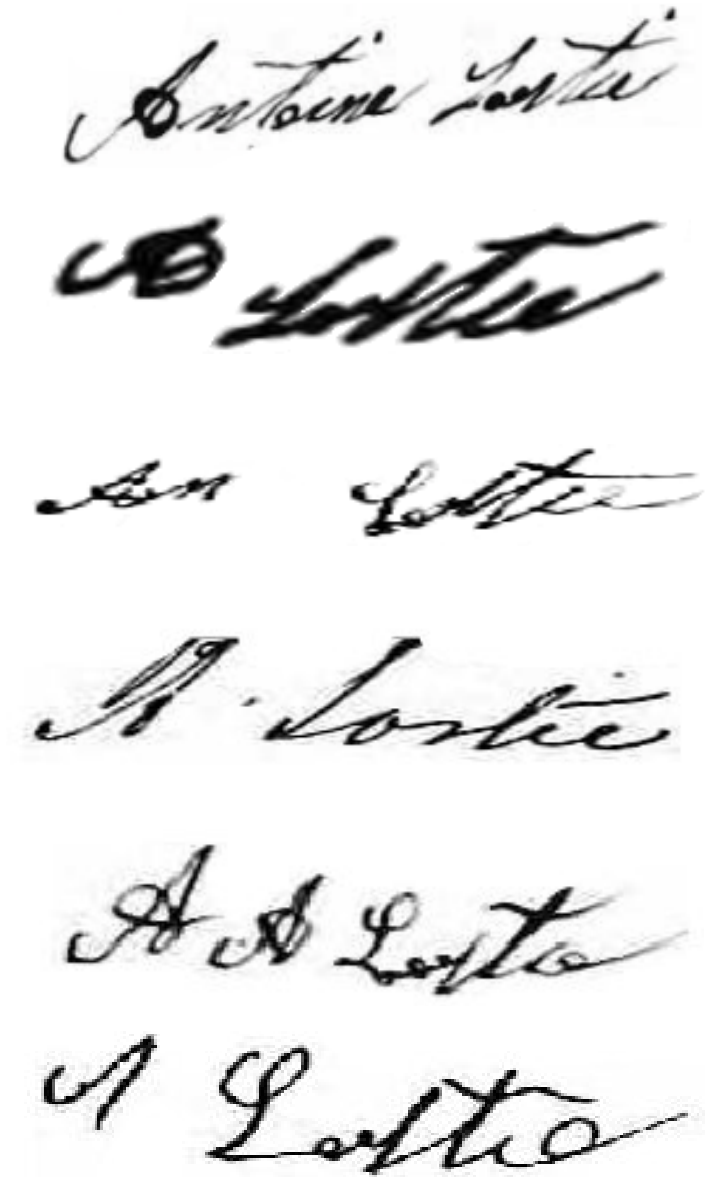 Antoine Lostie
A Lostie
An Lostie
A. Lostie
A A Lostie
A Lostie